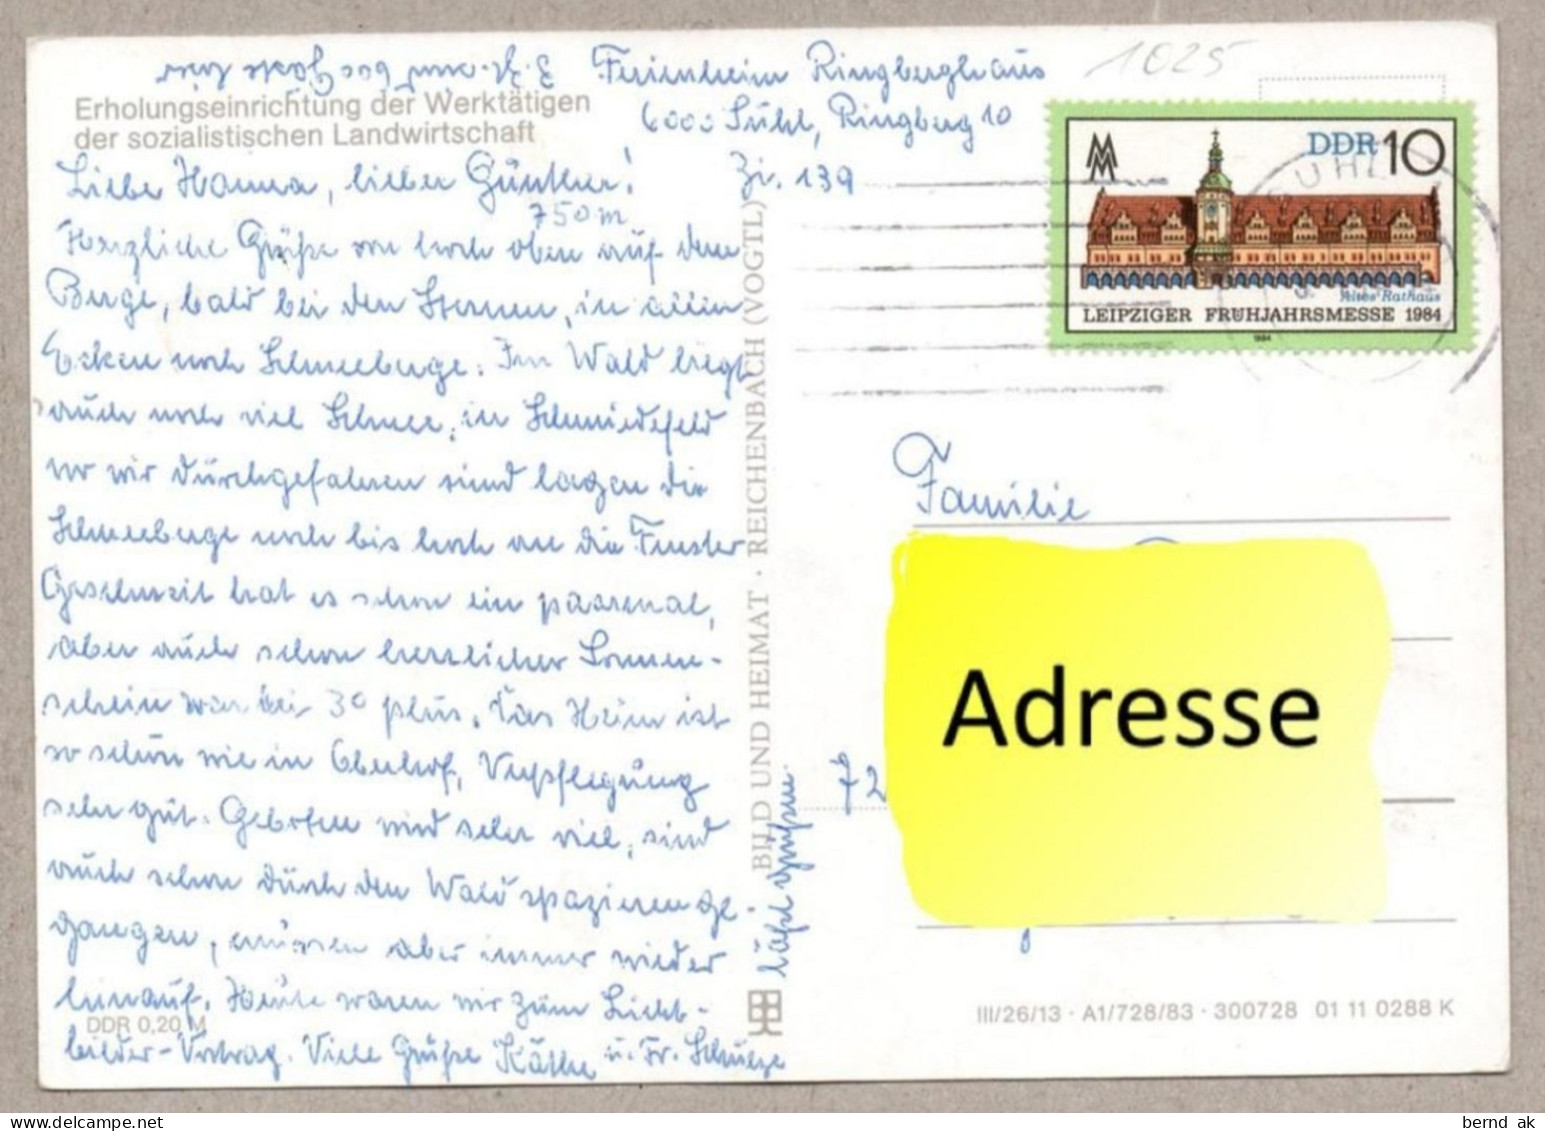 Ferienheim Ringberghaus
6000 Suhl, Ringberg 10
Zi. 139
1025
Erholungseinrichtung der Werktätigen
der sozialistischen Landwirtschaft
Liebe Hanna, lieber Günther!
750 m
Herzliche Grüße von hoch oben auf dem
Berge, bald bei den Sternen, in allen
Ecken noch Schneeberge. Im Wald liegt
auch noch viel Schnee, in Schmiedefeld
wo wir durchgefahren sind lagen die
Schneeberge noch bis hoch an die Fenster
Geschneit hat es schon ein paarmal,
aber auch schon herrlicher Sonnen-
schein war bei 3° plus. Das Heim ist
so schön wie in Oberhof, Verpflegung
sehr gut. Geboten wird sehr viel, sind
auch schon durch den Wald spazieren ge-
gangen, müssen aber immer wieder
hinauf. Heute waren wir zum Licht-
bilder-Vortrag. Viele Grüße Käthe u. Fr. Schulze
läßt grüßen
DDR 0,20 M
BILD UND HEIMAT · REICHENBACH (VOGTL)
DDR 10
MM
Altes Rathaus
LEIPZIGER FRÜHJAHRSMESSE 1984
1984
SUHL
Familie
Adresse
72
III/26/13 · A1/728/83 · 300728 01 11 0288 K
bernd ak